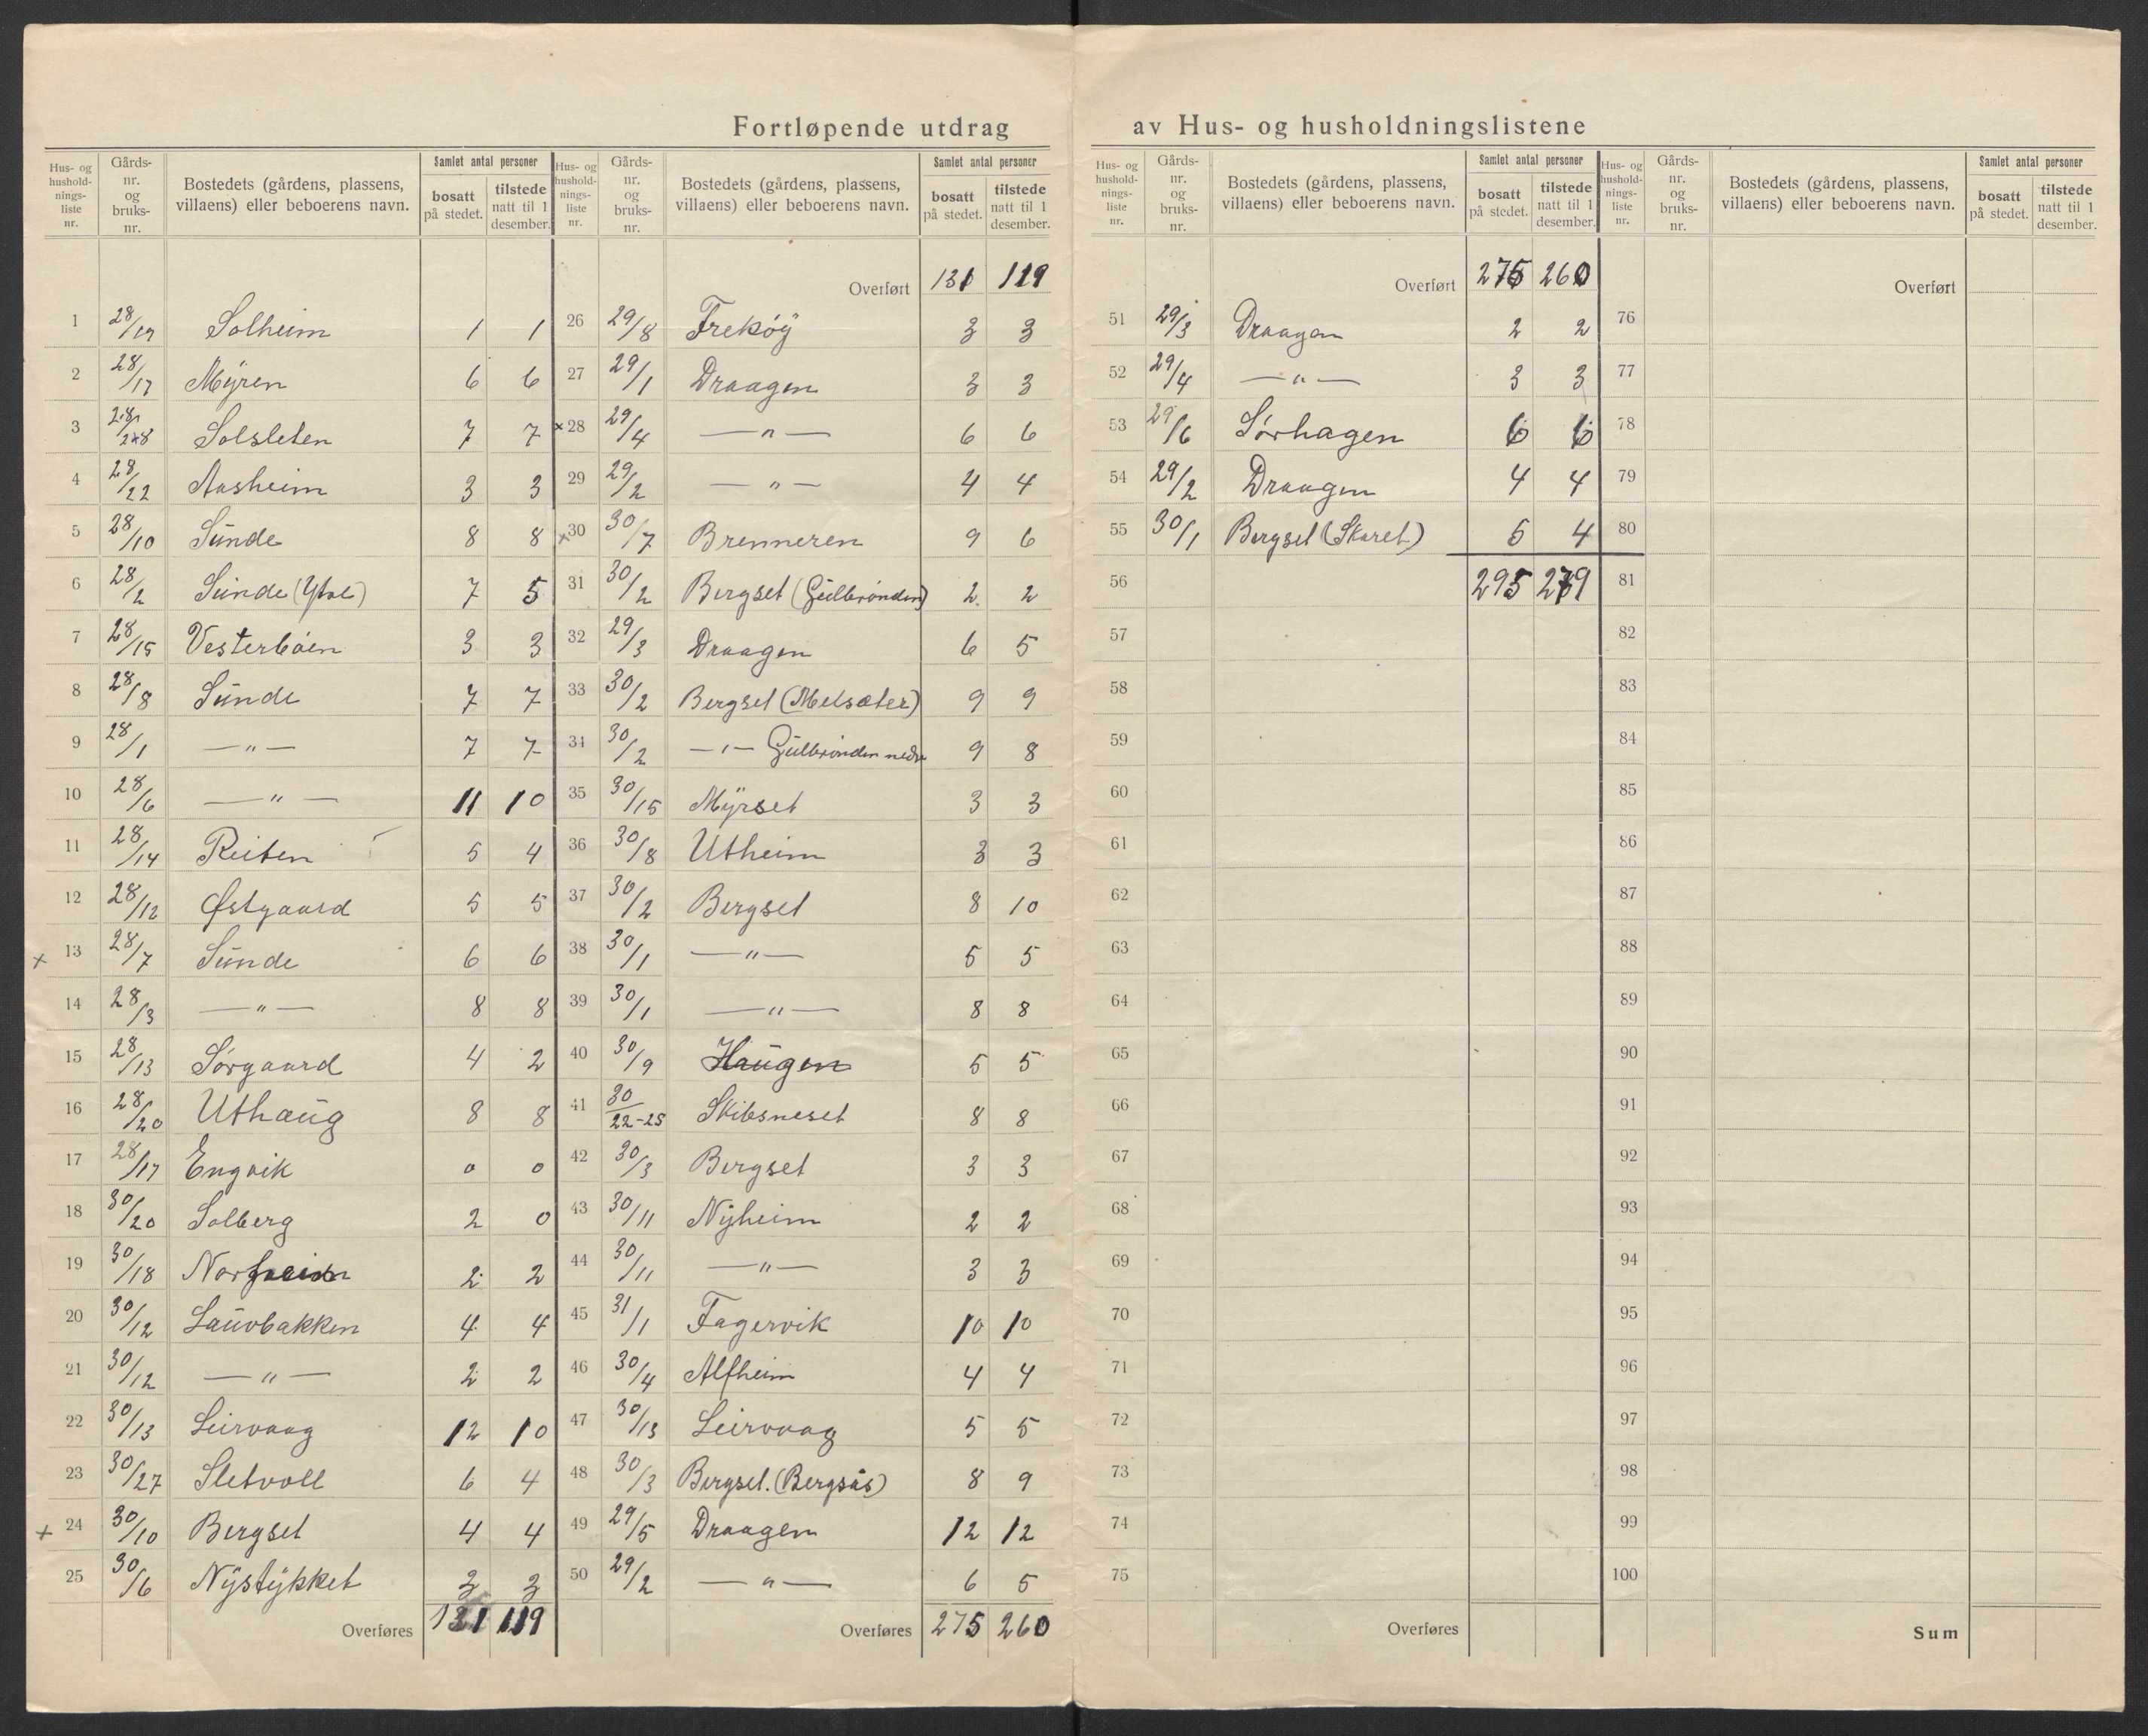 Fortløpende utdrag av Hus- og husholdningslistene
Hus- og husholdningsliste nr. | Gårds-nr. og bruks-nr. | Bostedets (gårdens, plassens, villaens) eller beboerens navn. | Samlet antal personer | bosatt på stedet. | tilstede natt til 1 desember.
1 28/19 Solheim 1 1
2 28/17 Myren 6 6
3 28/2+8 Solsleten 7 7
4 28/22 Aasheim 3 3
5 28/10 Sunde 8 8
6 28/2 Sunde (Ytre) 7 5
7 28/15 Vesterbøen 3 3
8 28/8 Sunde 7 7
9 28/1 —"— 7 7
10 28/6 —"— 11 10
11 28/14 Reiten 5 4
12 28/12 Østgaard 5 5
× 13 28/7 Sunde 6 6
14 28/3 —"— 8 8
15 28/13 Sørgaard 4 2
16 28/20 Uthaug 8 8
17 28/17 Engvik 0 0
18 30/20 Solberg 2 0
19 30/18 Norheim 2 2
20 30/12 Lauvbakken 4 4
21 30/12 —"— 2 2
22 30/13 Leirvaag 12 10
23 30/27 Sletvoll 6 4
+ 24 30/10 Bergset 4 4
25 30/6 Nystykket 3 3
Overføres 131 119
Hus- og husholdningsliste nr. | Gårds-nr. og bruks-nr. | Bostedets (gårdens, plassens, villaens) eller beboerens navn. | Samlet antal personer | bosatt på stedet. | tilstede natt til 1 desember.
Overført 131 119
26 29/8 Frekøy 3 3
27 29/1 Draagen 3 3
× 28 29/4 —"— 6 6
29 29/2 —"— 4 4
× 30 30/7 Brenneren 9 6
31 30/2 Bergset (Gulbrønden) 2 2
32 29/3 Draagen 6 5
33 30/2 Bergset (Melsæter) 9 9
34 30/2 —"— Gulbrønden nedre 9 8
35 30/15 Myrset 3 3
36 30/8 Utheim 3 3
37 30/2 Bergset 8 10
38 30/1 —"— 5 5
39 30/1 —"— 8 8
40 30/9 Haugen 5 5
41 30/22-25 Skibsneset 8 8
42 30/3 Bergset 3 3
43 30/11 Nyheim 2 2
44 30/11 —"— 3 3
45 31/1 Fagervik 10 10
46 30/4 Alfheim 4 4
47 30/13 Leirvaag 5 5
48 30/3 Bergset. (Bergsås) 8 9
49 29/5 Draagen 12 12
50 29/2 —"— 6 5
Overføres 275 260
Hus- og husholdningsliste nr. | Gårds-nr. og bruks-nr. | Bostedets (gårdens, plassens, villaens) eller beboerens navn. | Samlet antal personer | bosatt på stedet. | tilstede natt til 1 desember.
Overført 275 260
51 29/3 Draagen 2 2
52 29/4 —"— 3 3
53 29/6 Sørhagen 6 6
54 29/2 Draagen 4 4
55 30/1 Bergset (Skaret) 5 4
56 295 279
57
58
59
60
61
62
63
64
65
66
67
68
69
70
71
72
73
74
75
Overføres
Hus- og husholdningsliste nr. | Gårds-nr. og bruks-nr. | Bostedets (gårdens, plassens, villaens) eller beboerens navn. | Samlet antal personer | bosatt på stedet. | tilstede natt til 1 desember.
Overført
76
77
78
79
80
81
82
83
84
85
86
87
88
89
90
91
92
93
94
95
96
97
98
99
100
Sum